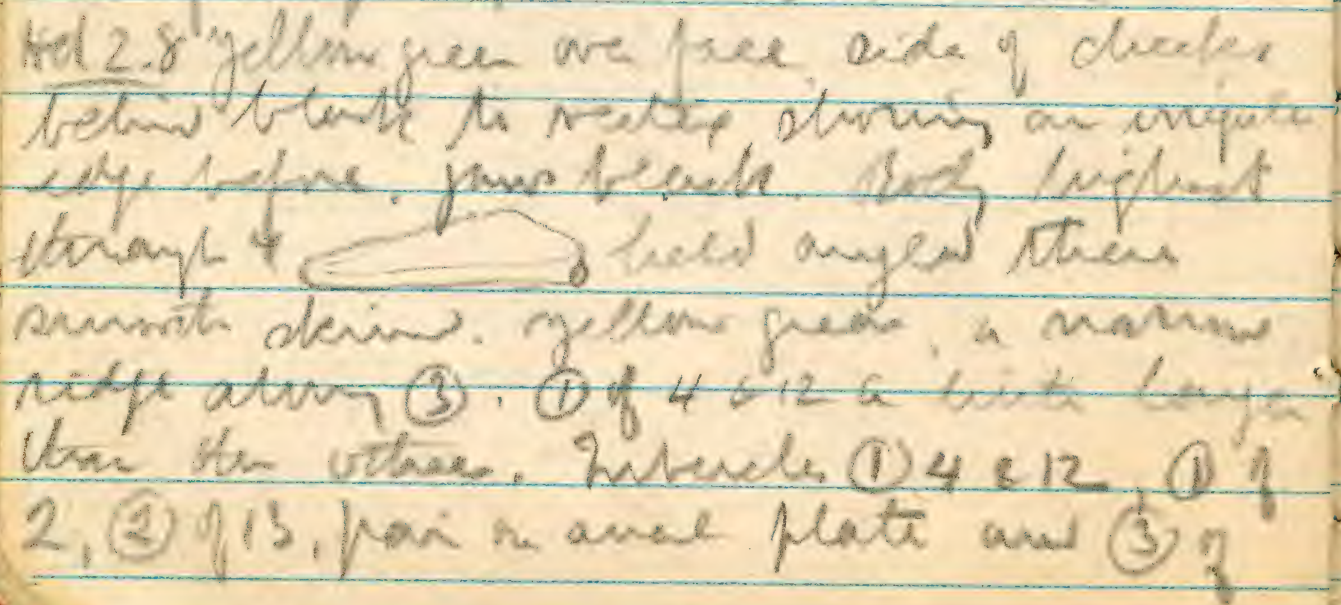 Hd 2.8 yellow green over face, side of cheeks
behind black to vertex showing an irregular
edge before, jaws black. Body highest
through 4 held angled there
smooth skin. Yellow green, a narrow
ridge along ③. ① of 4 & 12 a little larger
than the others. Tubercles ① 4 & 12, ① of
2, ② of 13, pair on anal plate and ③ of